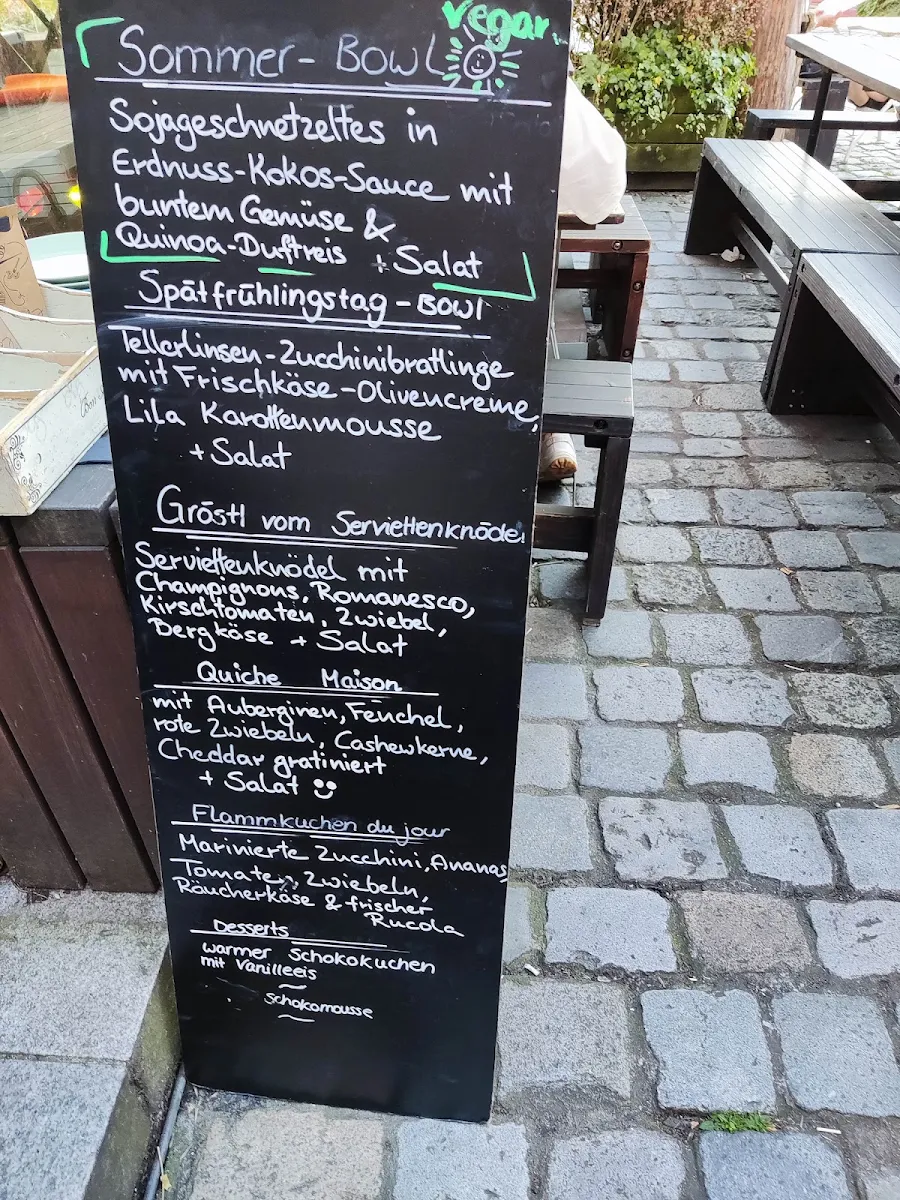 vegan
Sommer-Bowl
Sojageschnetzeltes in
Erdnuss-Kokos-Sauce mit
buntem Gemüse &
Quinoa-Duftreis + Salat
Spätfrühlingstag-Bowl
Tellerlinsen-Zucchinibratlinge
mit Frischkäse-Olivencreme,
Lila Karottenmousse
+ Salat
Gröstl vom Serviettenknödel
Serviettenknödel mit
Champignons, Romanesco,
Kirschtomaten, Zwiebel,
Bergkäse + Salat
Quiche Maison
mit Auberginen, Fenchel,
rote Zwiebeln, Cashewkerne,
Cheddar gratiniert
+ Salat
Flammkuchen du jour
Marinierte Zucchini, Ananas
Tomaten, Zwiebeln,
Räucherkäse & frischer
Rucola
Desserts
warmer Schokokuchen
mit Vanilleeis
Schokomousse